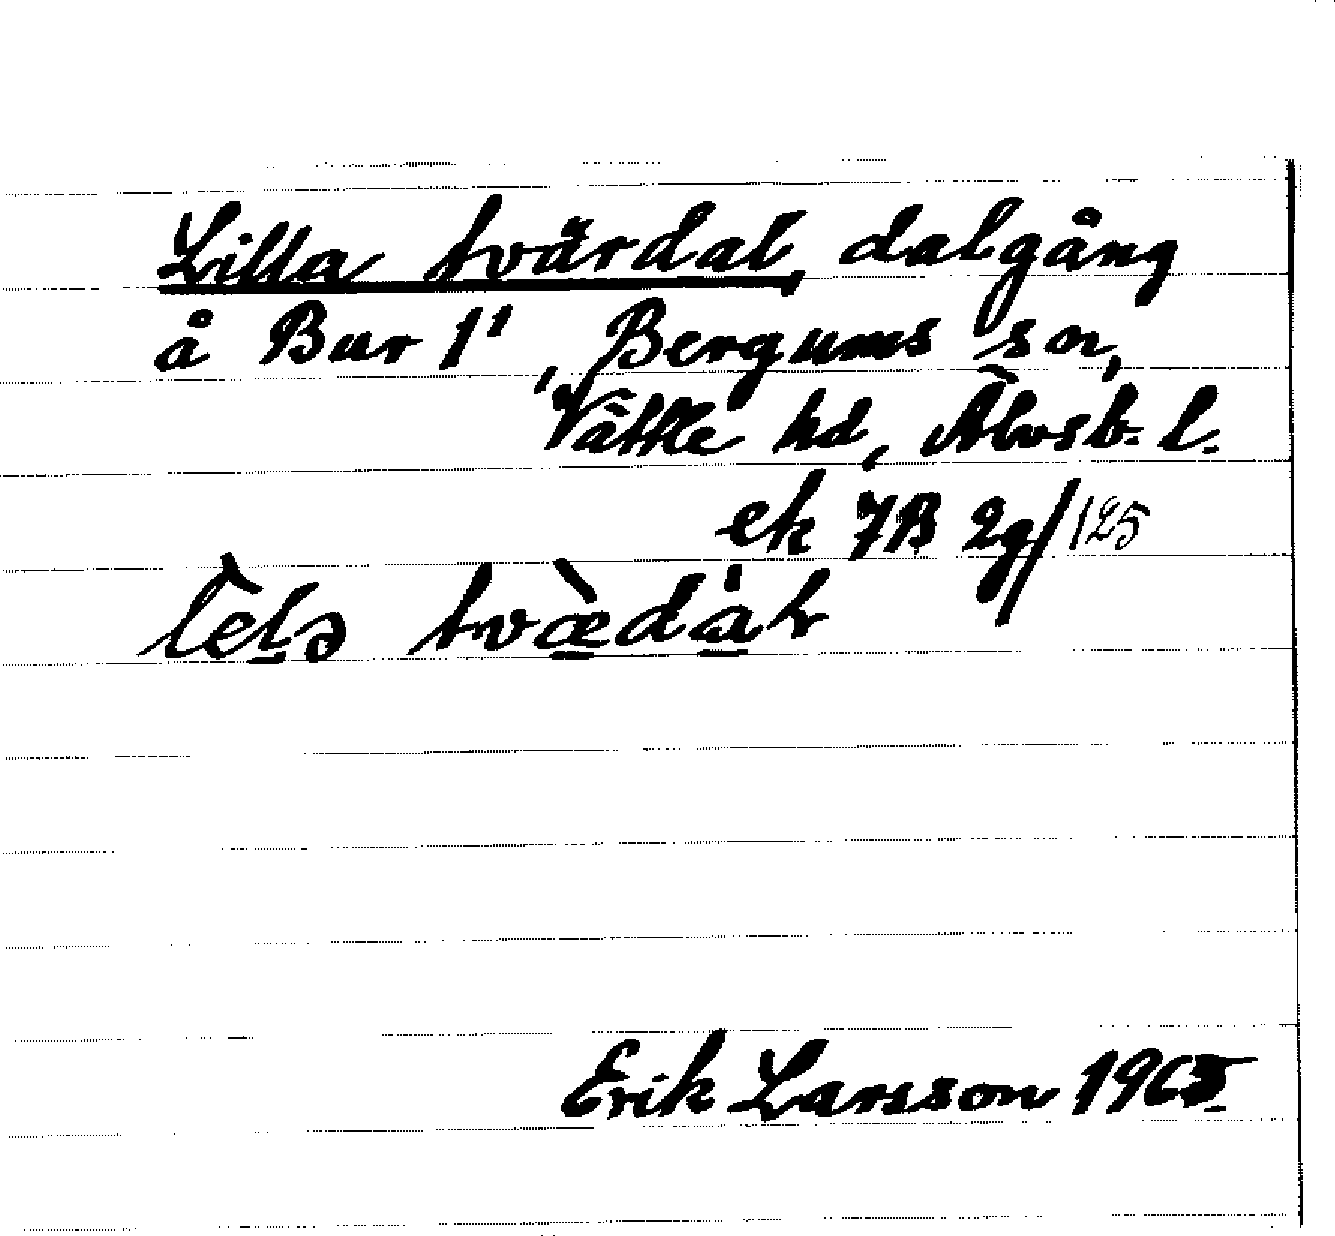 Lilla tvärdal, dalgång
å Bur 1¹, Bergums sn,
Vättle hd, Älvsb. l.
ek 7B 2g/125
Erik Larsson 1965